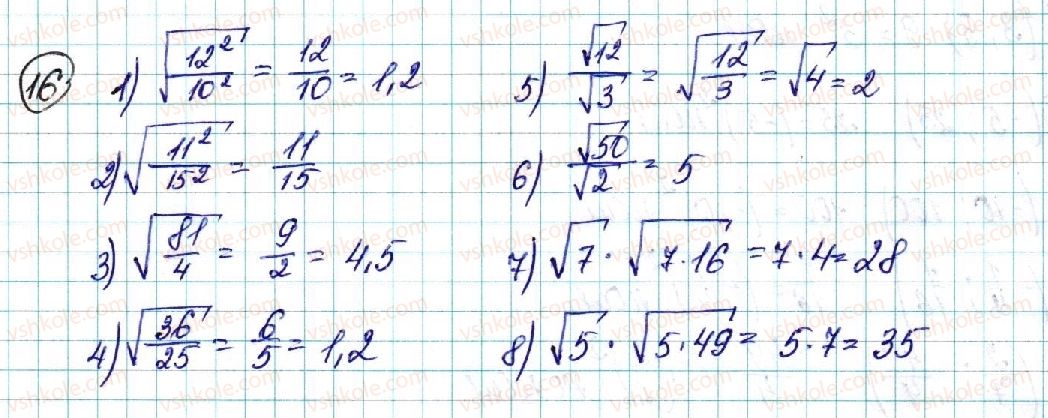 16
1) √(12²/10²) = 12/10 = 1,2
2) √(11²/15²) = 11/15
3) √(81/4) = 9/2 = 4,5
4) √(36/25) = 6/5 = 1,2
5) √12/√3 = √(12/3) = √4 = 2
6) √50/√2 = 5
7) √7 · √(7·16) = 7·4 = 28
8) √5 · √(5·49) = 5·7 = 35
vshkole.com